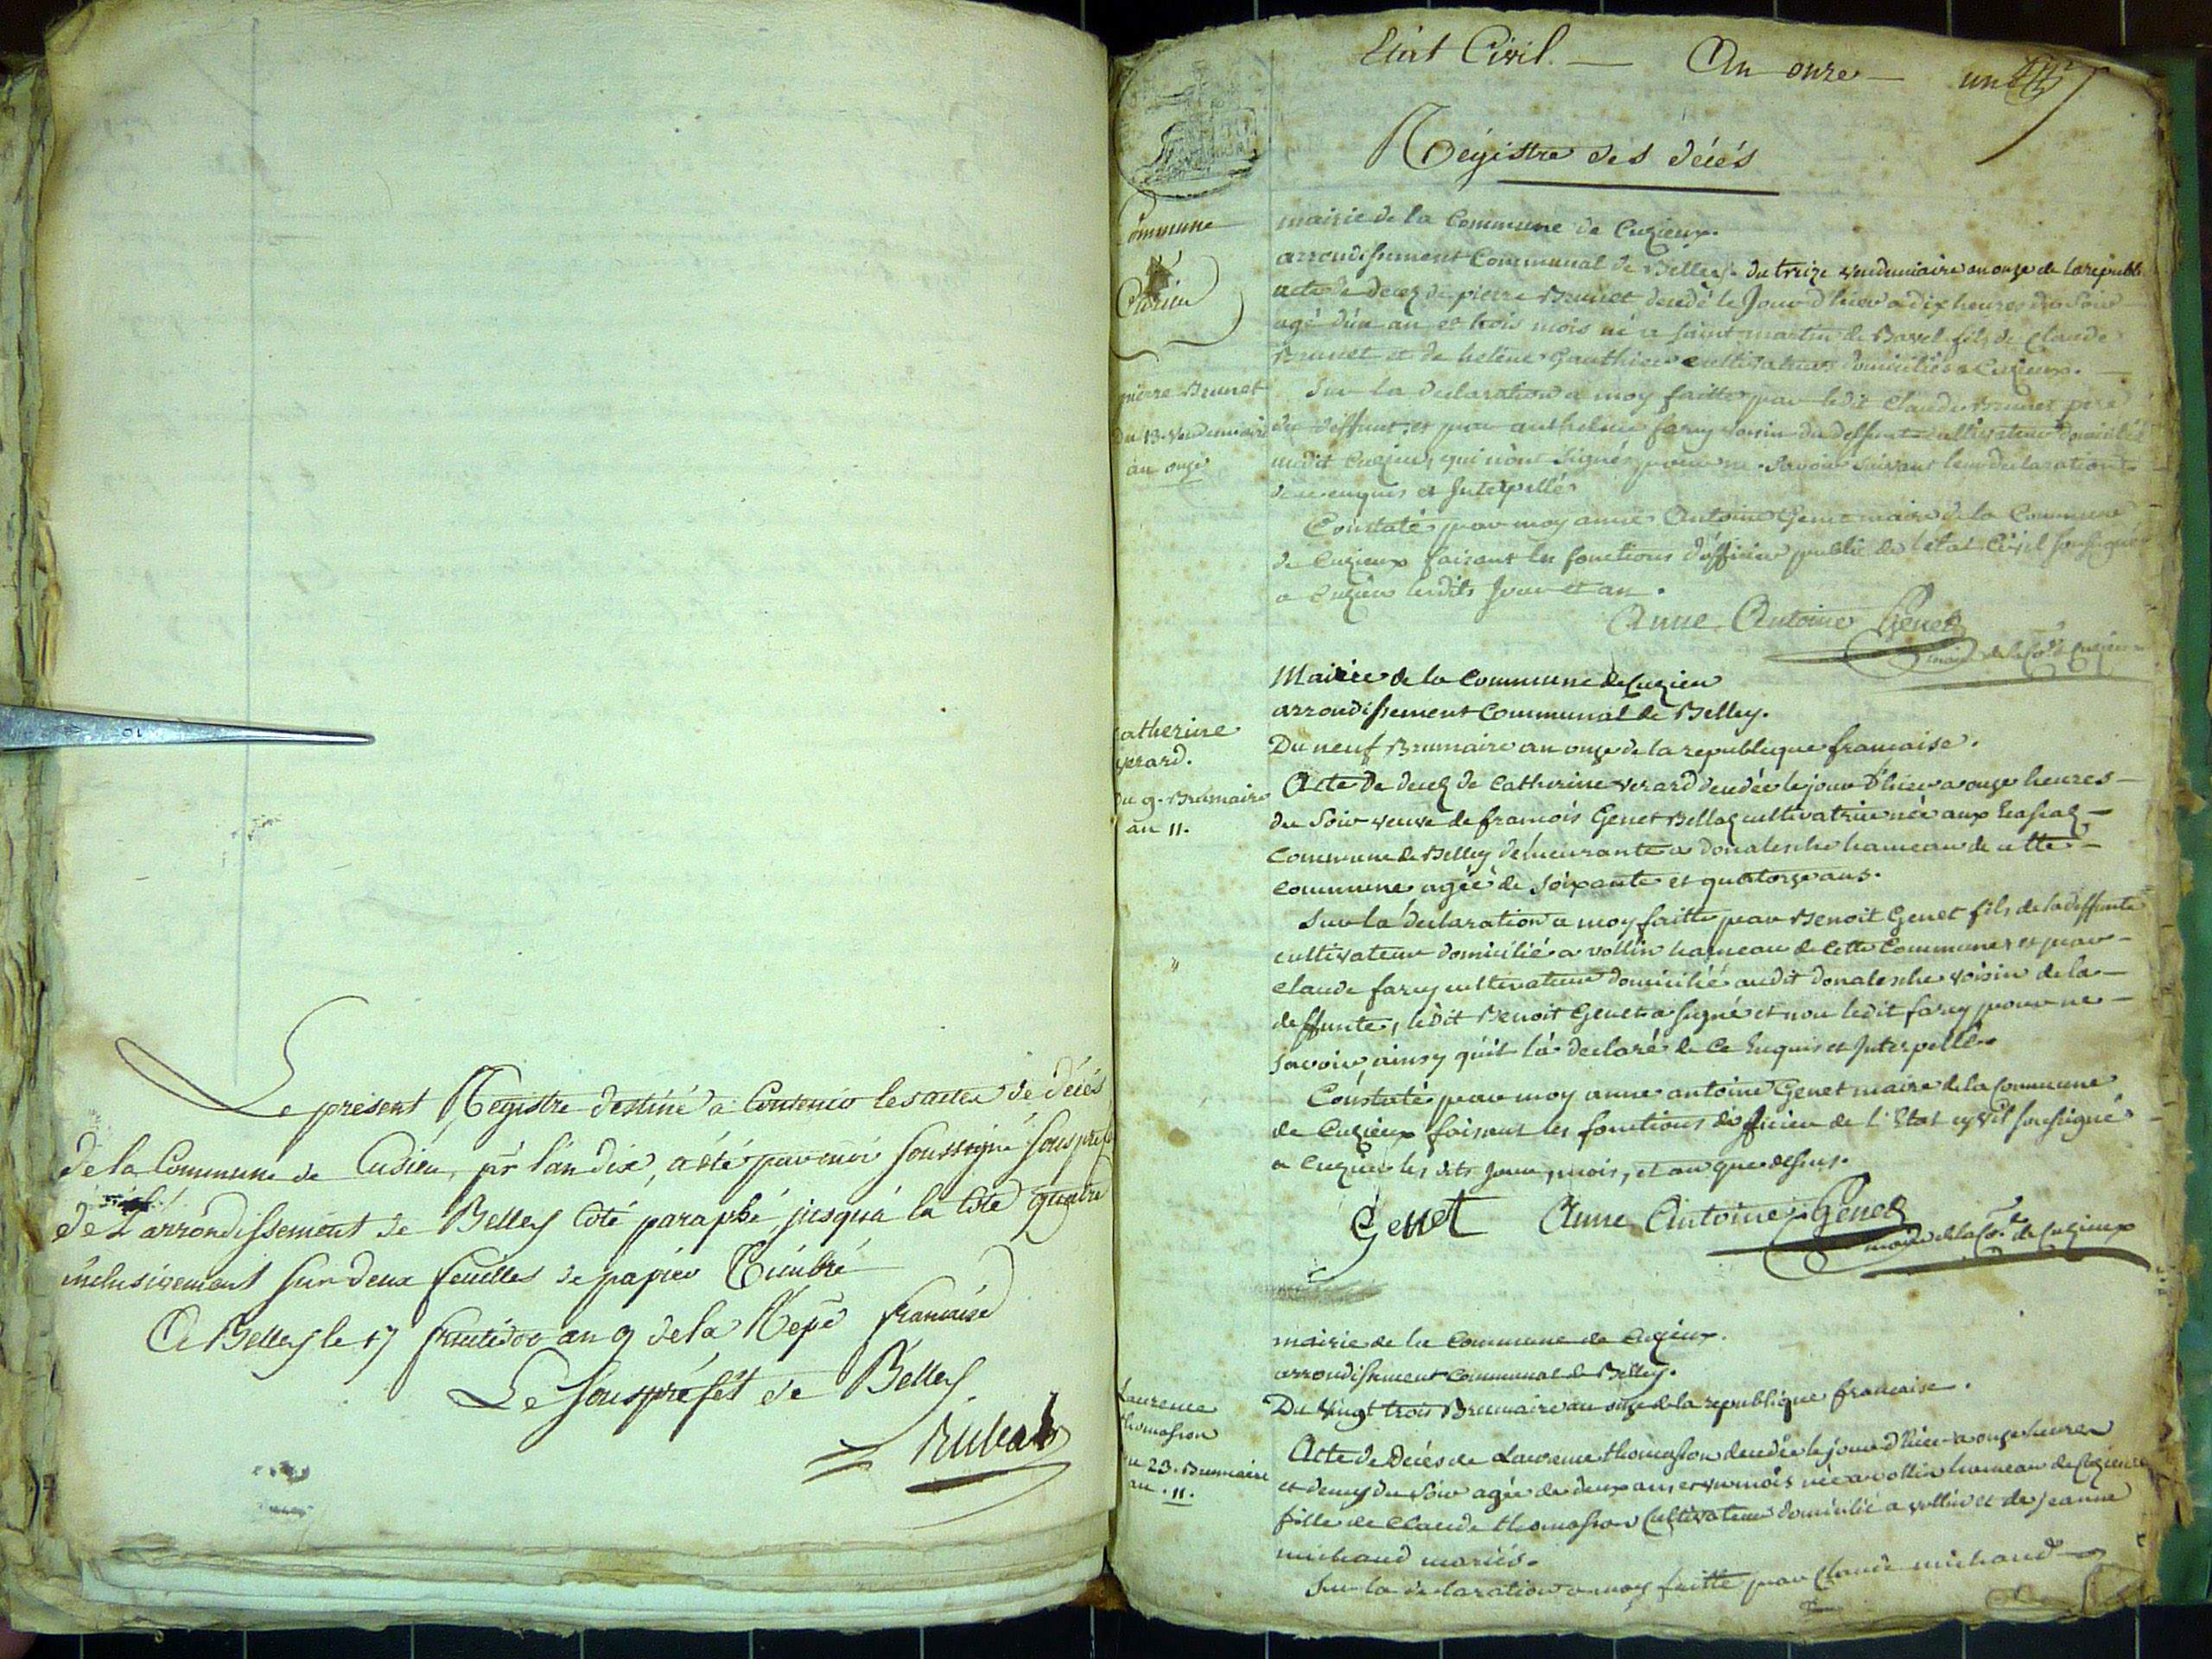 Le present Registre destiné à Contenir les actes de décés
de la Commune de Cusieu, pr l'an dix, a été par moi soussigné sous préfet
de L'arrondissement de Belley coté paraphé, jusqu'à la cote quatre
inclusivement sur deux feuilles de papier Timbré
A Belley le 17 fructidor an 9 de la Repe francaise
Le sous préfét de Belley
Rubat
Etat Civil. — An onze — un
Régistre des décés
Commune
de
Cusieu
pierre Brunet
Du 13. Vendemiaire
an onze
mairie de la Commune de Cuzieux.
arrondissement Communal de Belley. du treize vendemiaire an onze de la republi
acte de decez de pierre Brunet decedé le Jour d'hier a dix heures du soir
agé d'un an et trois mois né a saint martin de Bavel fils de Claude
Brunet et de helène Gauthier cultivateurs domiciliés a Cuzieux. —
Sur la declaration a moy faitte par ledit Claude Brunet pere
du deffunt, et par anthelme farcy voisin du deffunt cultivateur domicilié
audit Cuzieu, qui n'ont signés pour ne savoir suivant leur declaration
de ce enquis et Interpellés
Constaté par moy anne Antoine Genet maire de la Commune
de Cuzieux faisant les fonctions d'officier public de l'etat Civil soussigné
a Cuzieu lesdits Jour et an.
Anne Antoine Genet
maire de la Co.e de Cuzieux
Catherine
verard.
Du 9. Brumaire
an 11.
Mairie de la Commune de Cuzieu
arrondissement Communal de Belley.
Du neuf Brumaire an onze de la republique francaise.
Acte de decez de Catherine verard decedée le jour d'hier a onze heures —
du soir veuve de francois Genet Bellaz cultivatrice née aux
Commune de Belley demeurante a donalesche hameau de cette —
Commune agée de soixante et quatorze ans.
Sur la declaration a moy faitte par Benoit Genet fils de la deffunte
cultivateur domicilié a vollin hameau de cette Commune et par —
Claude farcy cultivateur domicilié audit donalesche voisin de la —
deffunte, ledit Benoit Genet a signé et non ledit farcy pour ne —
savoir, ainsy qu'il l'a declaré de ce Enquis et Interpellé.
Constaté par moy anne antoine Genet maire de la Commune
de Cuzieux faisant les fonctions d'officier de l'Etat cyvil soussigné
a Cuzieu les dits jour, mois, et an que dessus.
Genet Anne Antoine Genet
maire de la Co.e de Cuzieux
Laurence
thomasson
Du 23. Brumaire
an . 11.
mairie de la Commune de Cuzieux.
arrondissement Communal de Belley.
Du vingt trois Brumaire an onze de la republique francaise.
Acte de Decés de Laurence thomasson decedée le jour d'hier a onze heures
et demy du soir agée de deux ans et un mois née a vollin hameau de Cuzieux
fille de Claude thomasson Cultivateur domicilié a vollin et de jeanne
michaud mariés.
Sur la declaration a moy faitte par Claude michaud